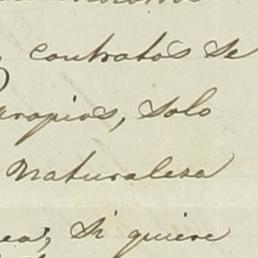 contratos se
propios, solo
naturalesa
si quiere